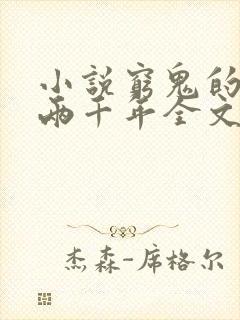 小說窮鬼的
兩千年全文
杰森-席格尔